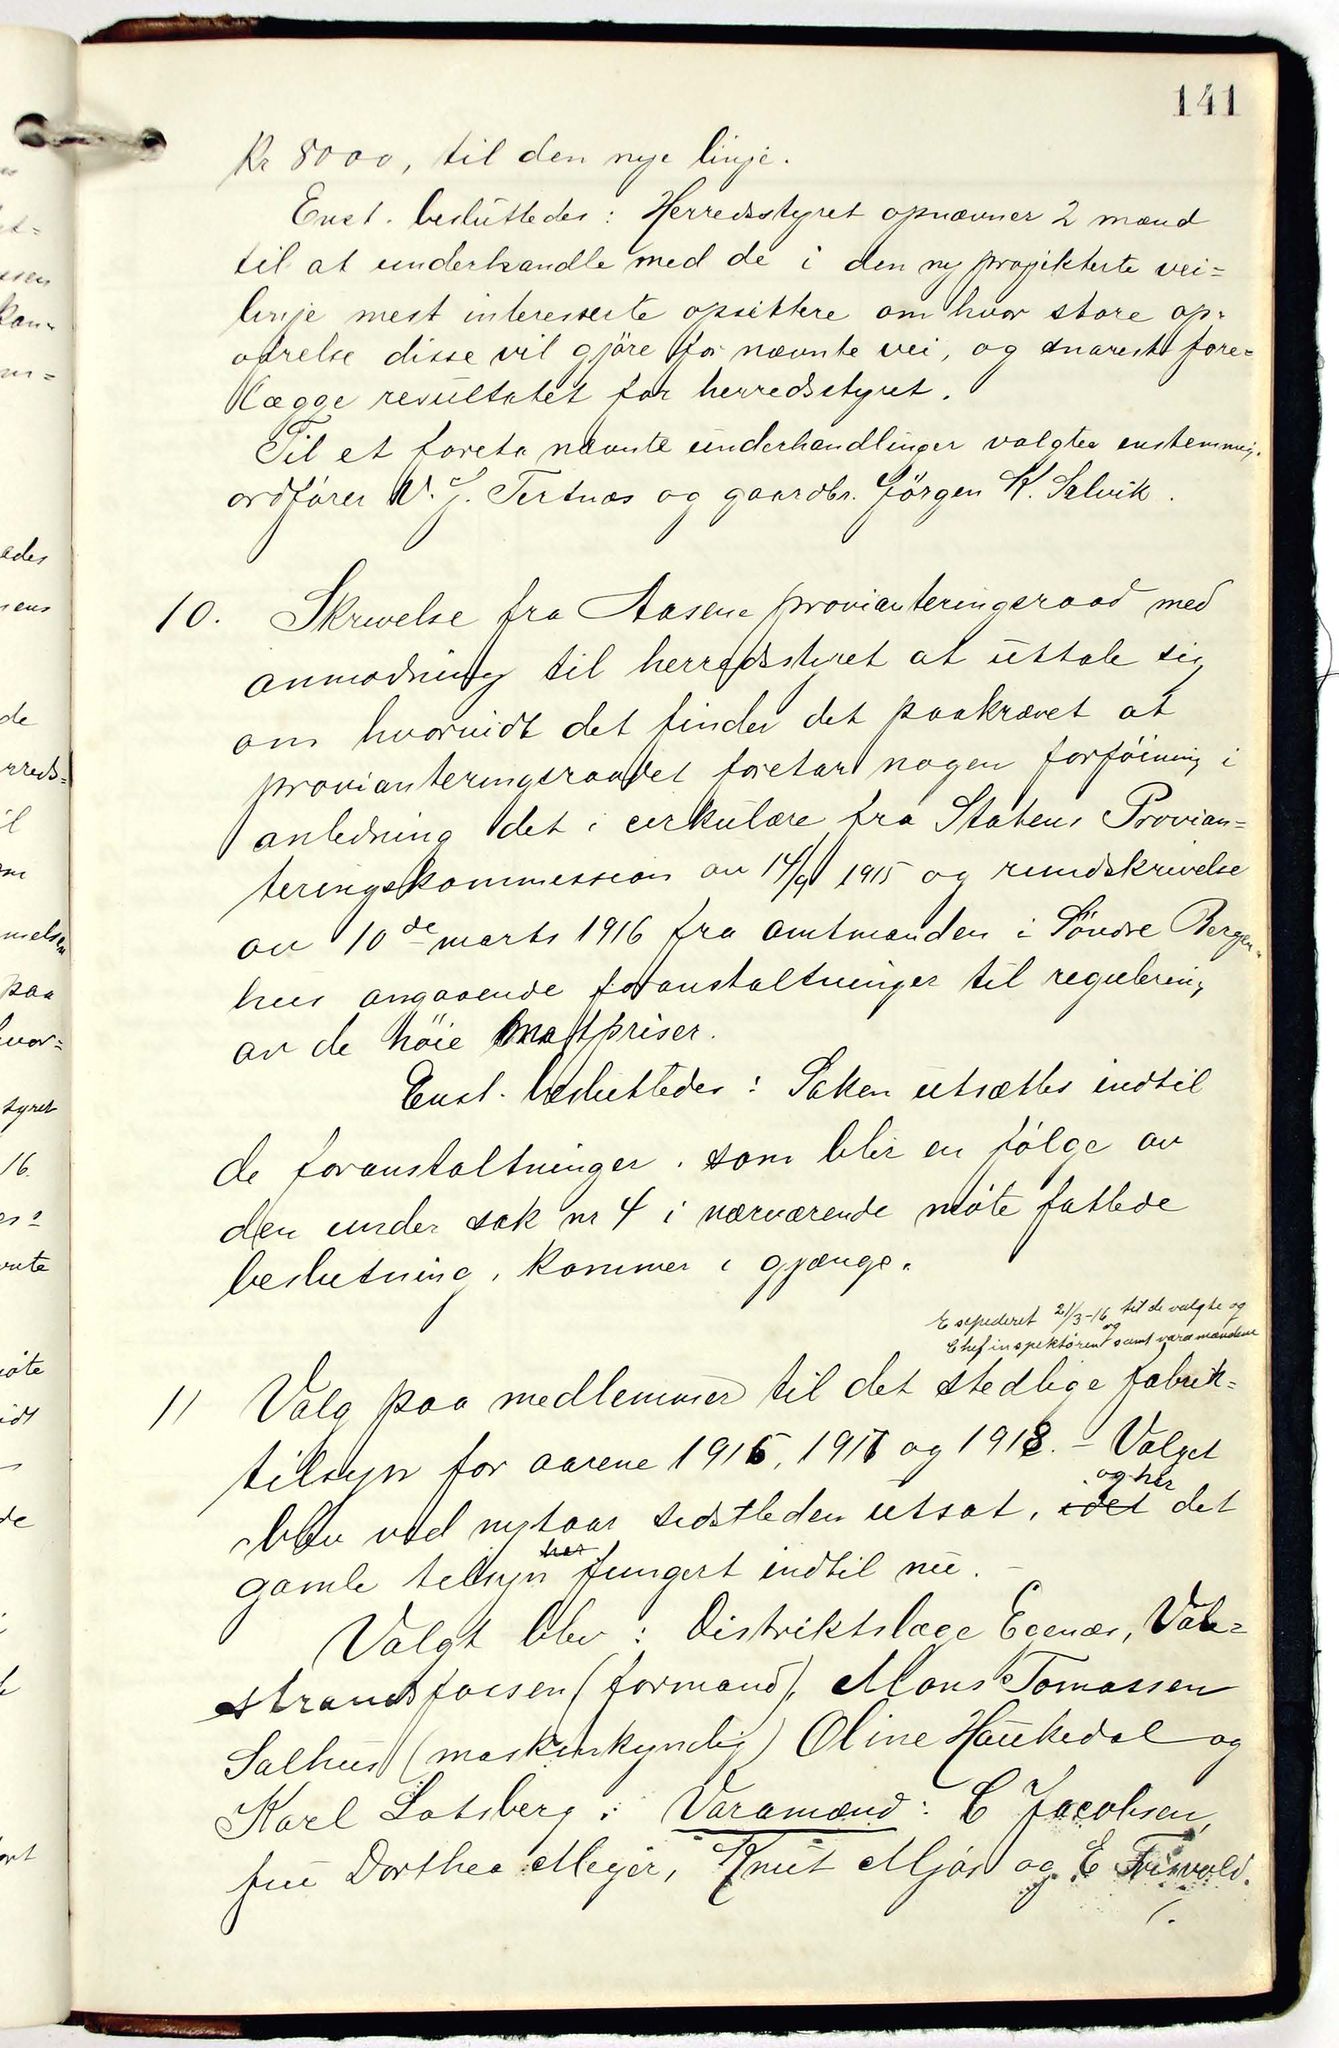 141
Kr 8000, til den nye linje.
Enst. besluttedes: Herredsstyret opnævner 2 mænd
til at underhandle med de i den ny projekterte vei=
linje mest interesserte opsittere om hvor store op-
ofrelse disse vil gjöre for nævnte vei, og snarest fore=
lægge resultatet for herredsstyret.
Til et foreta nævnte underhandlinger valgtes enstemmig.
ordförer V. J. Tertnæs og gaardbr. Jörgen K. Salvik.
10. Skrivelse fra Aasene provianteringsraad med
anmodning til herredsstyret at uttale sig
om hvorvidt det finder det paakrævet at
provianteringsraadet foretar nogen forföining i
anledning det i cirkulære fra Statens Provian=
teringskommission av 14/9 1915 og rundskrivelse
av 10de marts 1916 fra amtmanden i Söndre Bergen=
hus angaaende foranstaltninger til regulering
av de höie matpriser.
Enst. besluttedes: Saken utsættes indtil
de foranstaltninger, som blir en fölge av
den under sak nr 4 i nærværende möte fattede
beslutning, kommer i gjænge.
Expederet 21/3-16 til de valgte og
Chefinspektören og samt varamændene
11 Valg paa medlemmer til det stedlige fabrik=
tilsyn for aarene 1916, 1917 og 1918. - Valget
blev ved nytaar sidstleden utsat, idet og har det
gamle tilsyn har fungert indtil nu. -
Valgt blev: Distriktslæge Egenæs, Vale=
strandsfossen (formand), Mons Tomassen
Salhus (maskinkyndig) Oline Haukedal og
Karl Lotsberg. Varamænd: C Jacobsen,
fru Dorthea Mejer, Knut Mjös og E Frisvold.